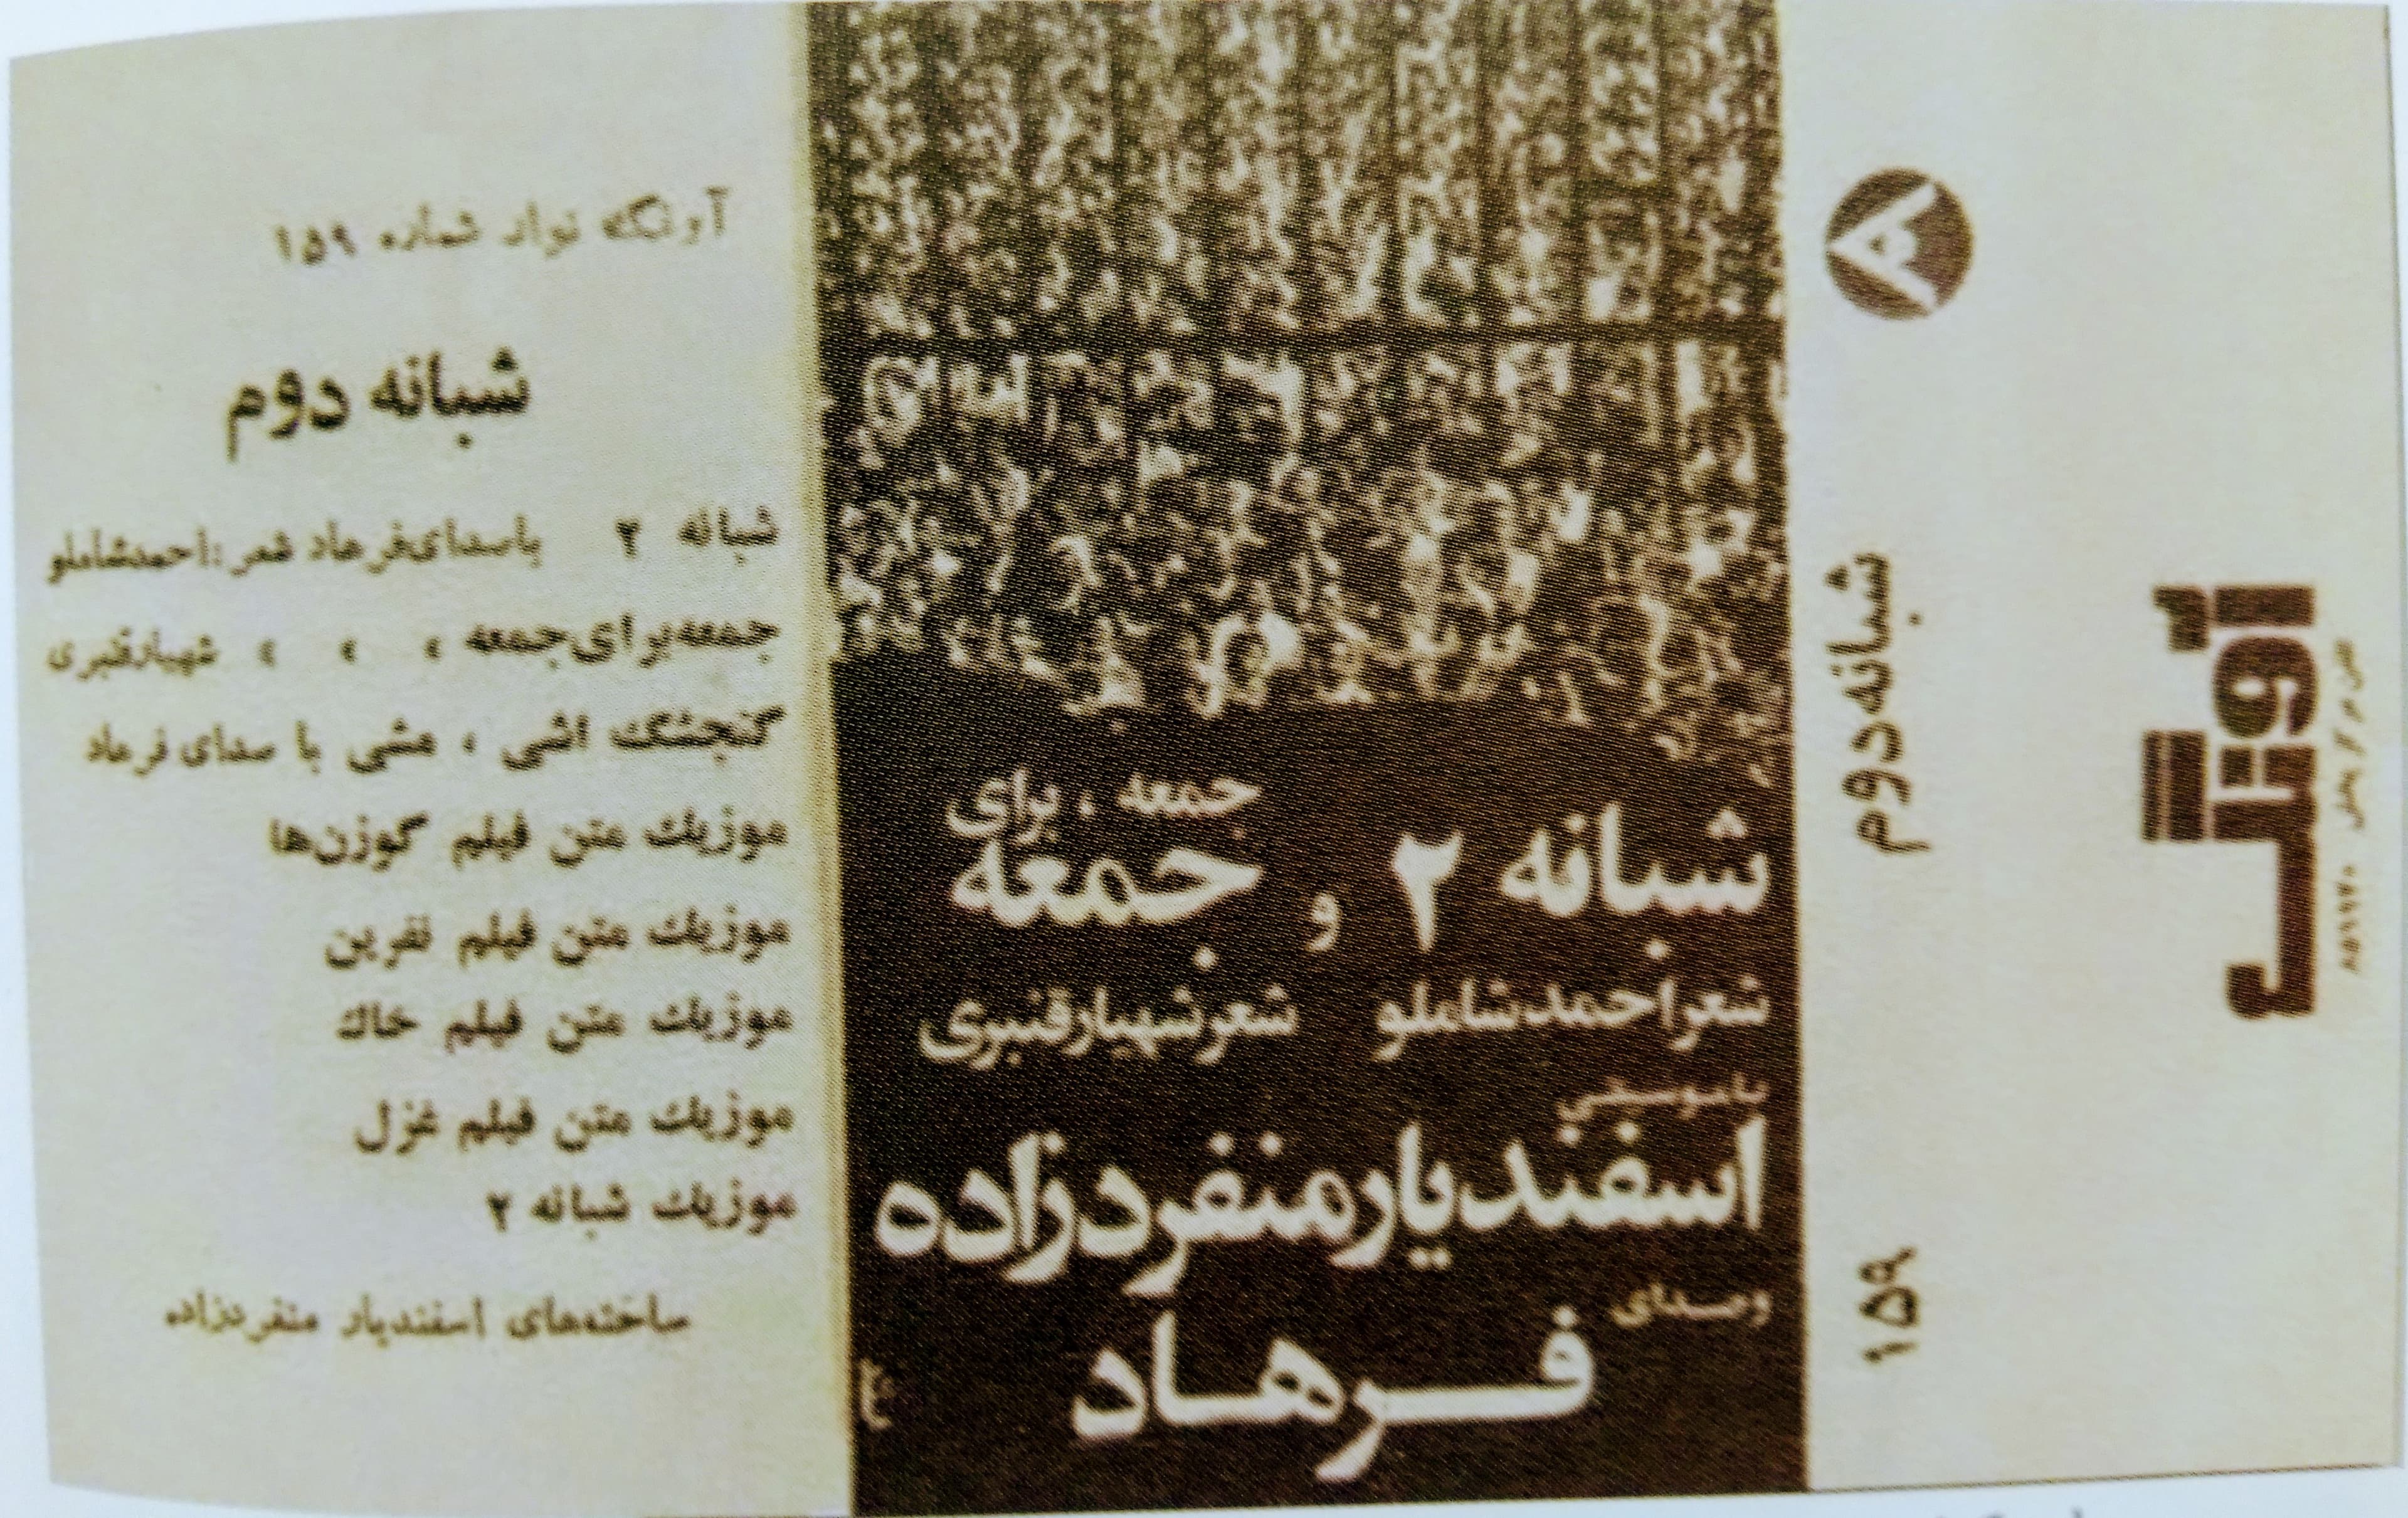 آونگ نوار شماره ۱۵۹
شبانه دوم
شبانه ۲ باصدای‌فرهاد شعر: احمدشاملو
جمعه‌برای‌جمعه » » » شهیارقنبری
گنجشگ اشی ، مشی با صدای فرهاد
موزیک متن فیلم گوزن‌ها
موزیک متن فیلم نفرین
موزیک متن فیلم خاک
موزیک متن فیلم غزل
موزیک شبانه ۲
ساخته‌های اسفندیار منفردزاده
شبانه ۲ و جمعه ، برای جمعه
شعراحمدشاملو شعرشهیارقنبری
باموسیقی
اسفندیارمنفردزاده
وصدای
فرهاد
شبانه دوم
۱۵۹
آونگ